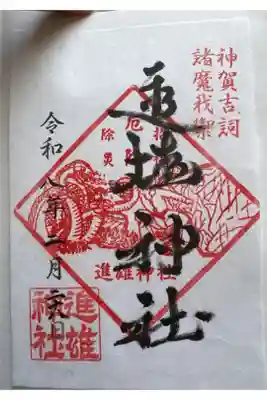 神賀吉詞
諸魔我禦
進雄神社
除災
進雄神社
令和八年二月
進雄
神社